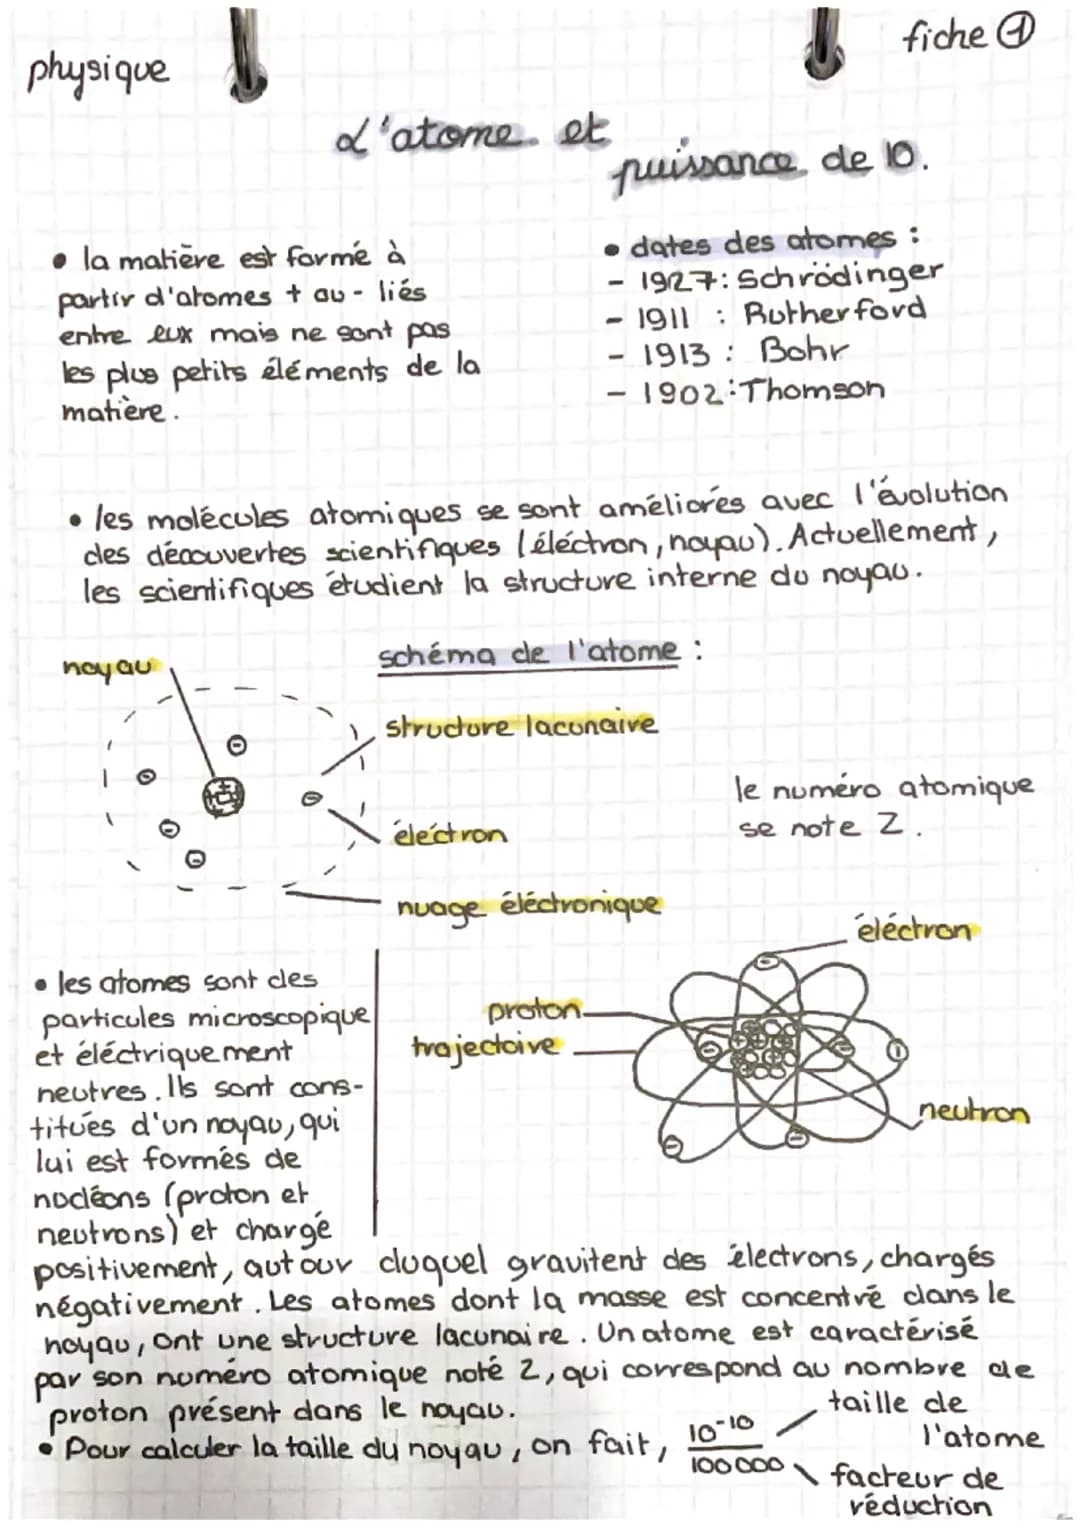 physique
fiche ①
L'atome et
puissance de 10.
• la matière est formé à
partir d'atomes + au - liés
entre eux mais ne sont pas
les plus petits éléments de la
matière.
• dates des atomes :
- 1927: Schrödinger
- 1911 : Rutherford
- 1913 : Bohr
- 1902: Thomson
• les molécules atomiques se sont améliorés avec l'évolution
des découvertes scientifiques (éléctron, noyau). Actuellement,
les scientifiques étudient la structure interne du noyau.
schéma de l'atome :
noyau
structure lacunaire
éléctron
nuage éléctronique
le numéro atomique
se note Z.
éléctron
proton
trajectoire
neutron
• les atomes sont des
particules microscopique
et éléctriquement
neutres. Ils sont cons-
titués d'un noyau, qui
lui est formés de
nucléons (proton et
neutrons) et chargé
positivement, autour duquel gravitent des électrons, chargés
négativement. Les atomes dont la masse est concentré dans le
noyau, ont une structure lacunaire. Un atome est caractérisé
par son numéro atomique noté Z, qui correspond au nombre de
proton présent dans le noyau.
• Pour calculer la taille du noyau, on fait, 10⁻¹⁰
100000
taille de
l'atome
facteur de
réduction